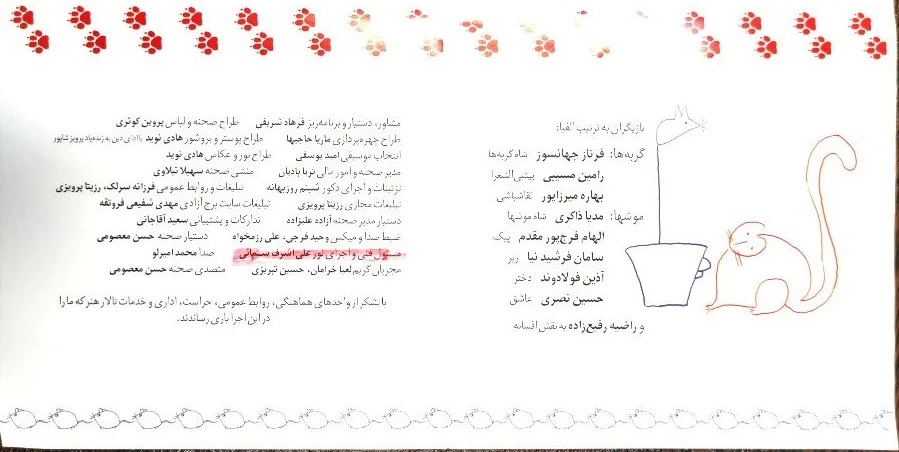 بازیگران به ترتیب الفبا:
گربه‌ها: فرناز جهانسوز شاه گربه‌ها
رامین مسیبی پیشی‌الشعرا
بهاره میرزاپور نقاشباشی
موشها: مدیا ذاکری شاه موشها
الهام فرج‌پور مقدم پیک
سامان فرشید نیا
آذین فولادوند دختر
حسین نصری عاشق
و راضیه رفیع‌زاده به نقش افسانه
مشاور، دستیار و برنامه‌ریز فرهاد شریفی طراح صحنه و لباس پروین کوثری
طراح چهره‌پردازی ماریا حاجیها طراح پوستر و بروشور هادی نوید با ادای دین به زنده‌یاد پرویز شاپور
انتخاب موسیقی امید یوسفی طراح نور و عکاس هادی نوید
مدیر صحنه و امور مالی ثریا بادیان منشی صحنه سهیلا نیلاوی
تزئینات و اجرای دکور شبنم روزبهانه تبلیغات و روابط عمومی فرزانه سرلک، رزیتا پرویزی
تبلیغات مجازی رزیتا پرویزی تبلیغات سایت برج آزادی مهدی شفیعی فروتقه
دستیار مدیر صحنه آزاده علیزاده تدارکات و پشتیبانی سعید آقاجانی
ضبط صدا و میکس وحید فرجی، علی رزمخواه دستیار صحنه حسن معصومی
مسئول فنی و اجرای نور علی اشرف بستمانی صدا محمد امیرلو
مجریان گریم لعیا خرامان، حسین تبریزی متصدی صحنه حسن معصومی
با تشکر از واحدهای هماهنگی، روابط عمومی، حراست، اداری و خدمات تالار هنر که ما را
در این اجرا یاری رساندند.